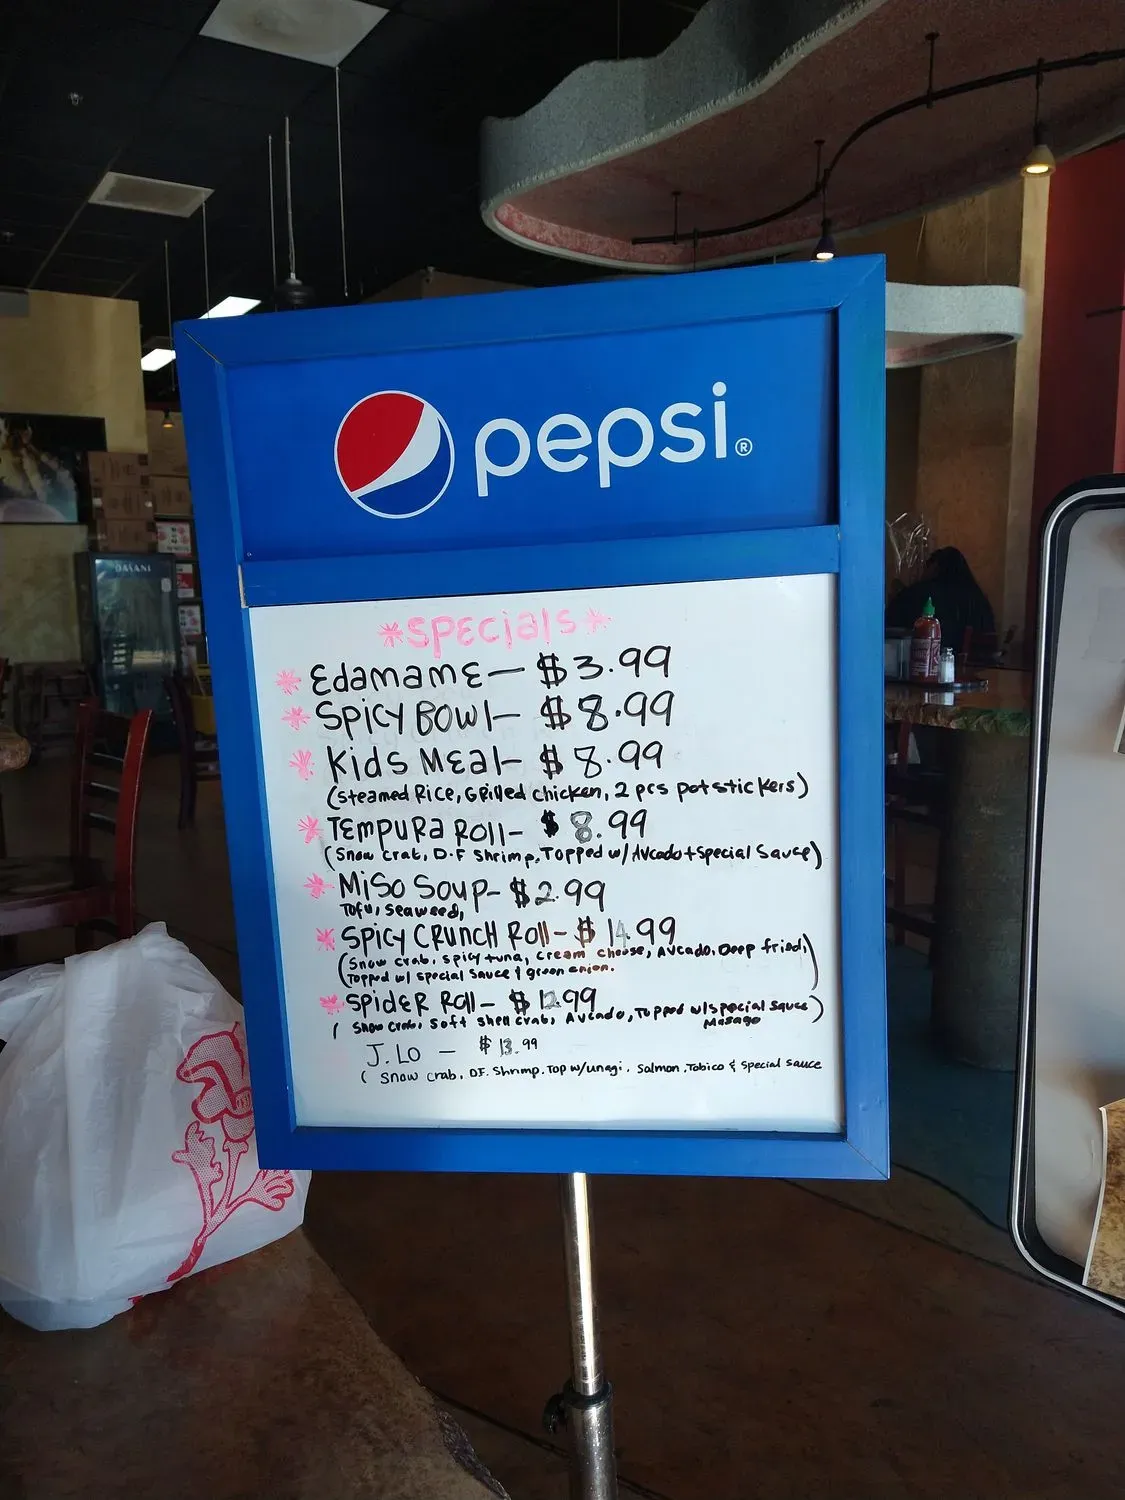 DASANI
pepsi®
*Specials*
* Edamame - $3.99
* Spicy Bowl - $8.99
* Kids Meal - $8.99
(Steamed Rice, Grilled chicken, 2 pcs potstickers)
* Tempura Roll - $8.99
(Snow crab, D.F Shrimp, Topped w/ Avcado + Special Sauce)
* Miso Soup - $2.99
Tofu, Seaweed,
* Spicy Crunch Roll - $14.99
(Snow crab, spicy tuna, cream cheese, Avcado. Deep fried,
Topped w/ special sauce & green onion.)
* Spider Roll - $12.99
(Snow crab, Soft Shell crab, Avcado, Topped w/special sauce)
Masago
J.Lo - $13.99
(Snow crab, DF. Shrimp. Top w/unagi, Salmon, Tobico & Special Sauce